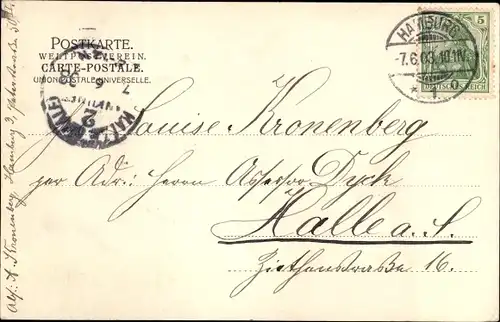 POSTKARTE.
WELTPOSTVEREIN.
CARTE-POSTALE.
UNION POSTALE UNIVERSELLE.
HAMBURG
-7.6.03.10-11V.
* 1 o
5
DEUTSCHES REICH
HALLE
2
Louise Kronenberg
per Adr: Herrn Assessor Dyck
Halle a. S.
Ziethenstraße 16.
Kronenberg, Hamburg 3,